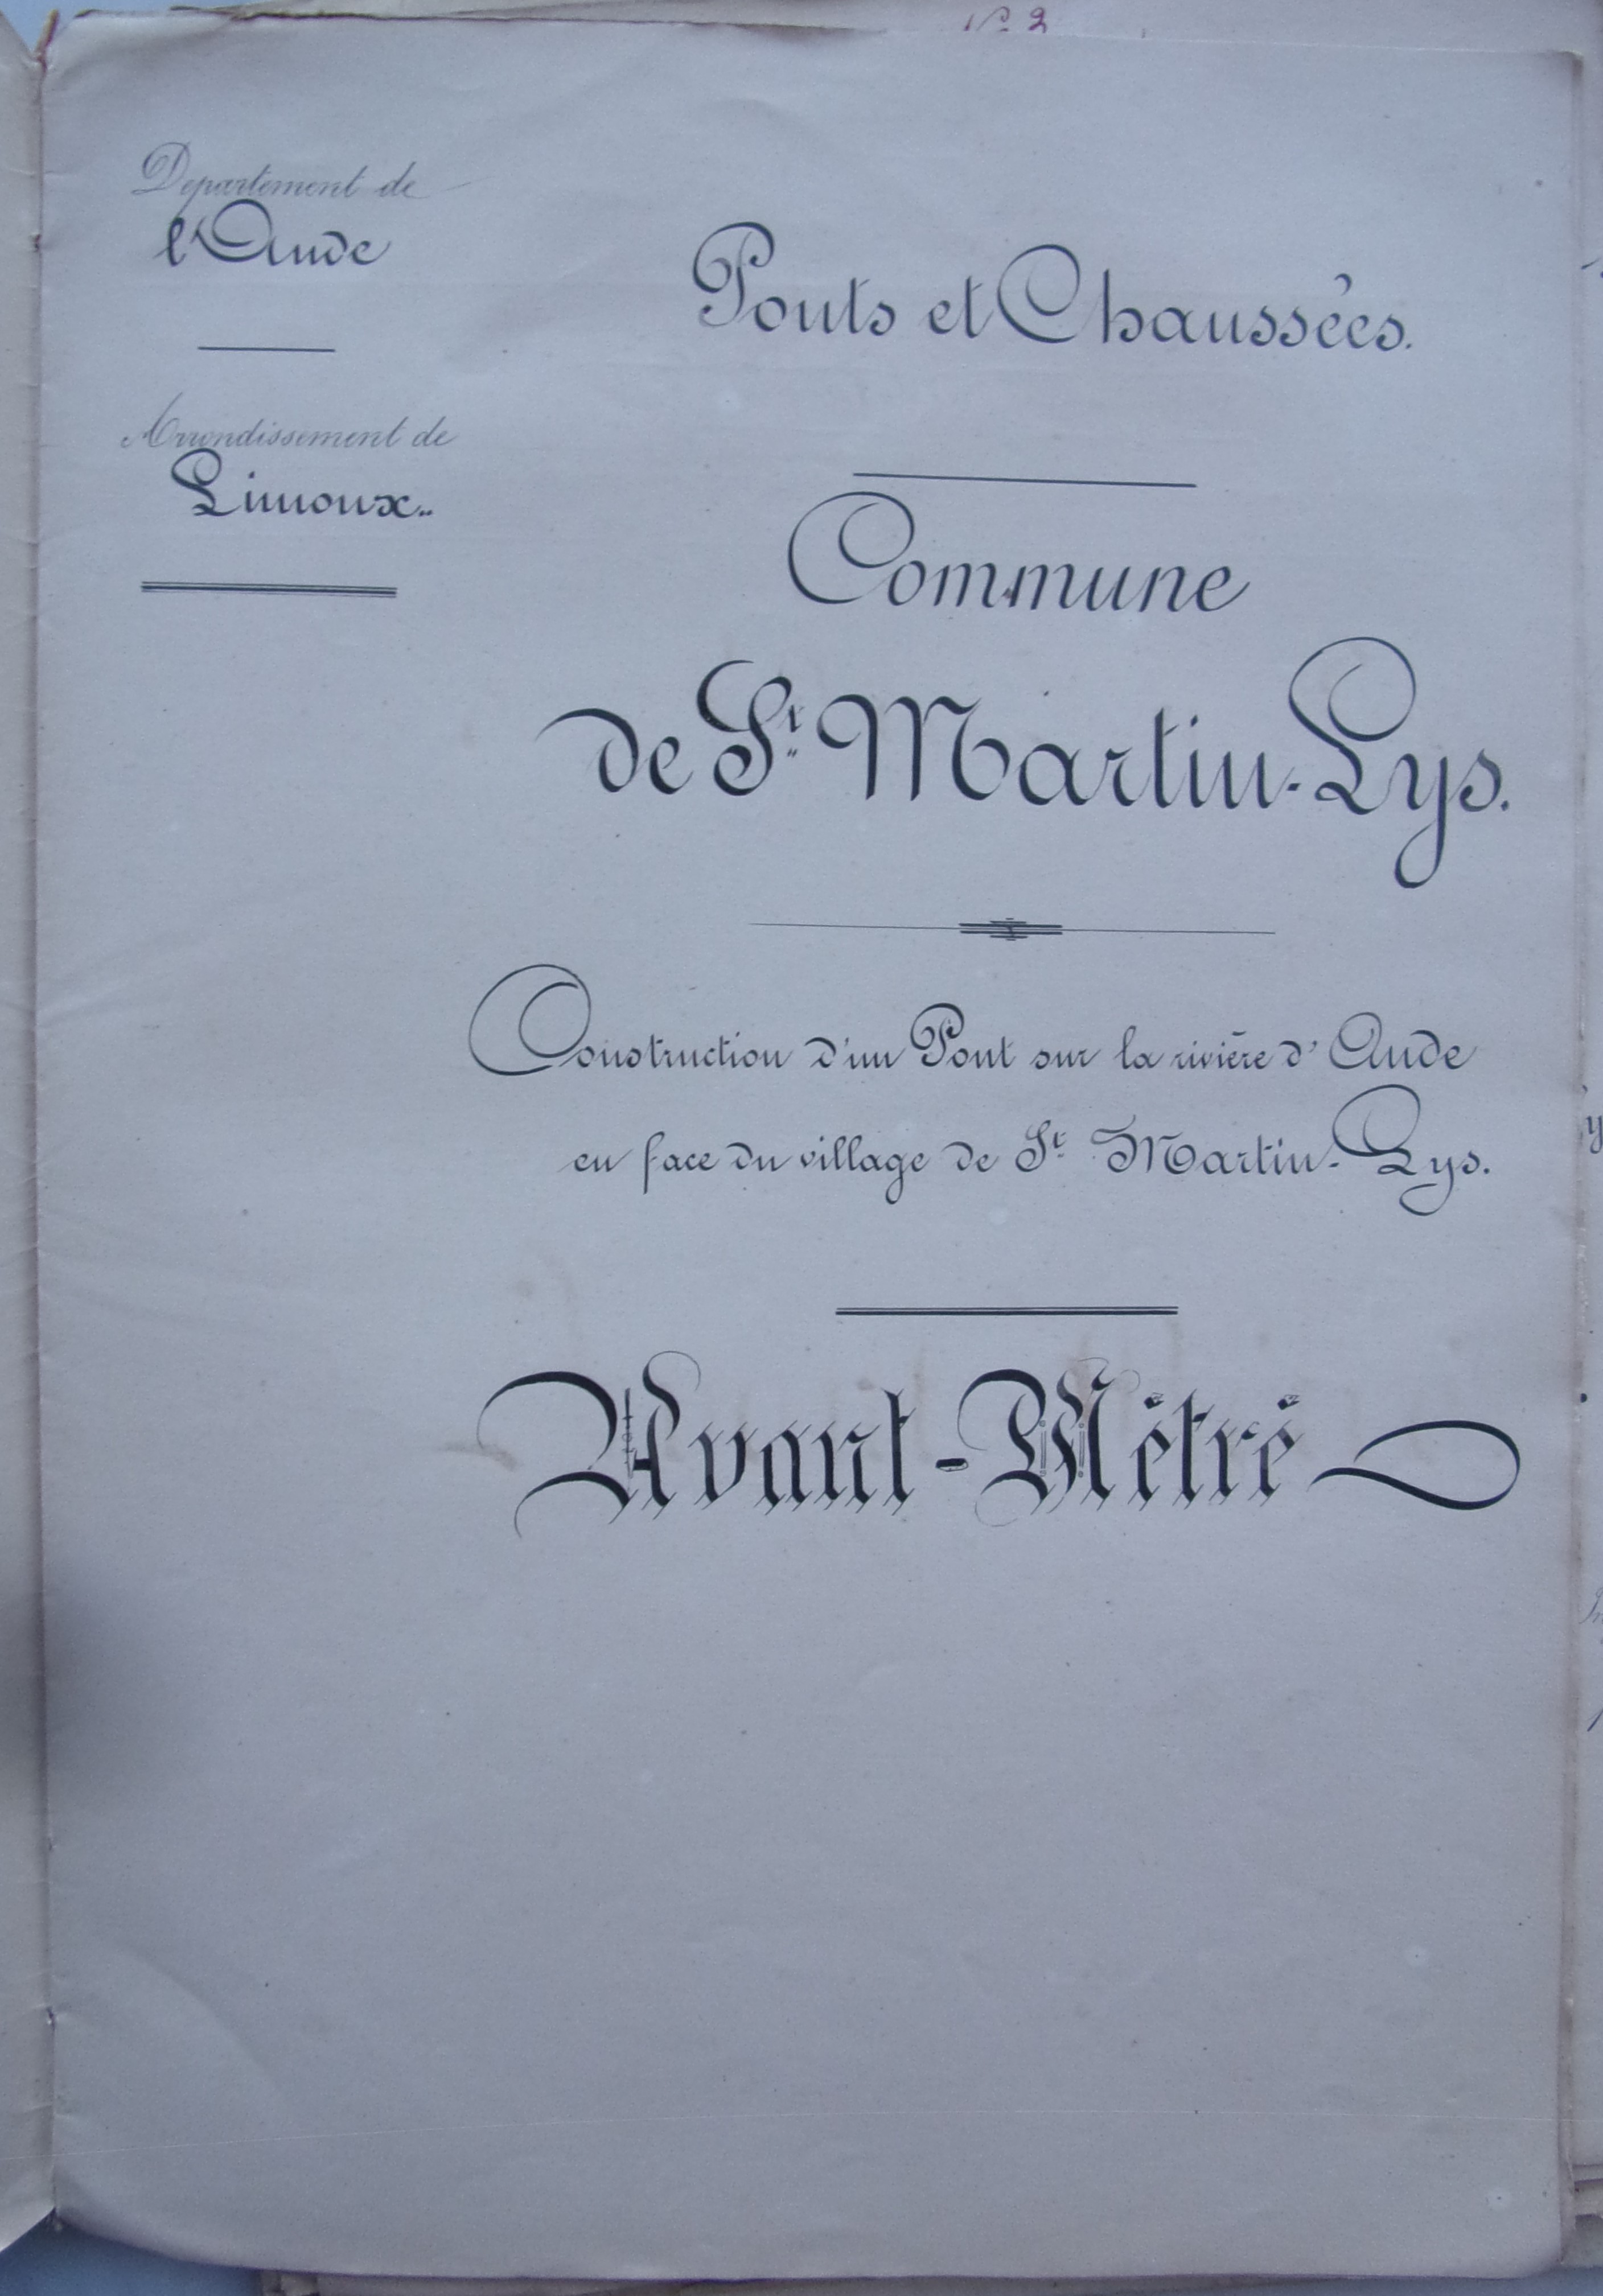 N° 2
Departement de
l'Aude
Arrondissement de
Limoux..
Ponts et Chaussées.
Commune
de St. Martin-Lys.
Construction d'un Pont sur la rivière d'Aude
en face du village de St Martin-Lys.
Avant-Métré